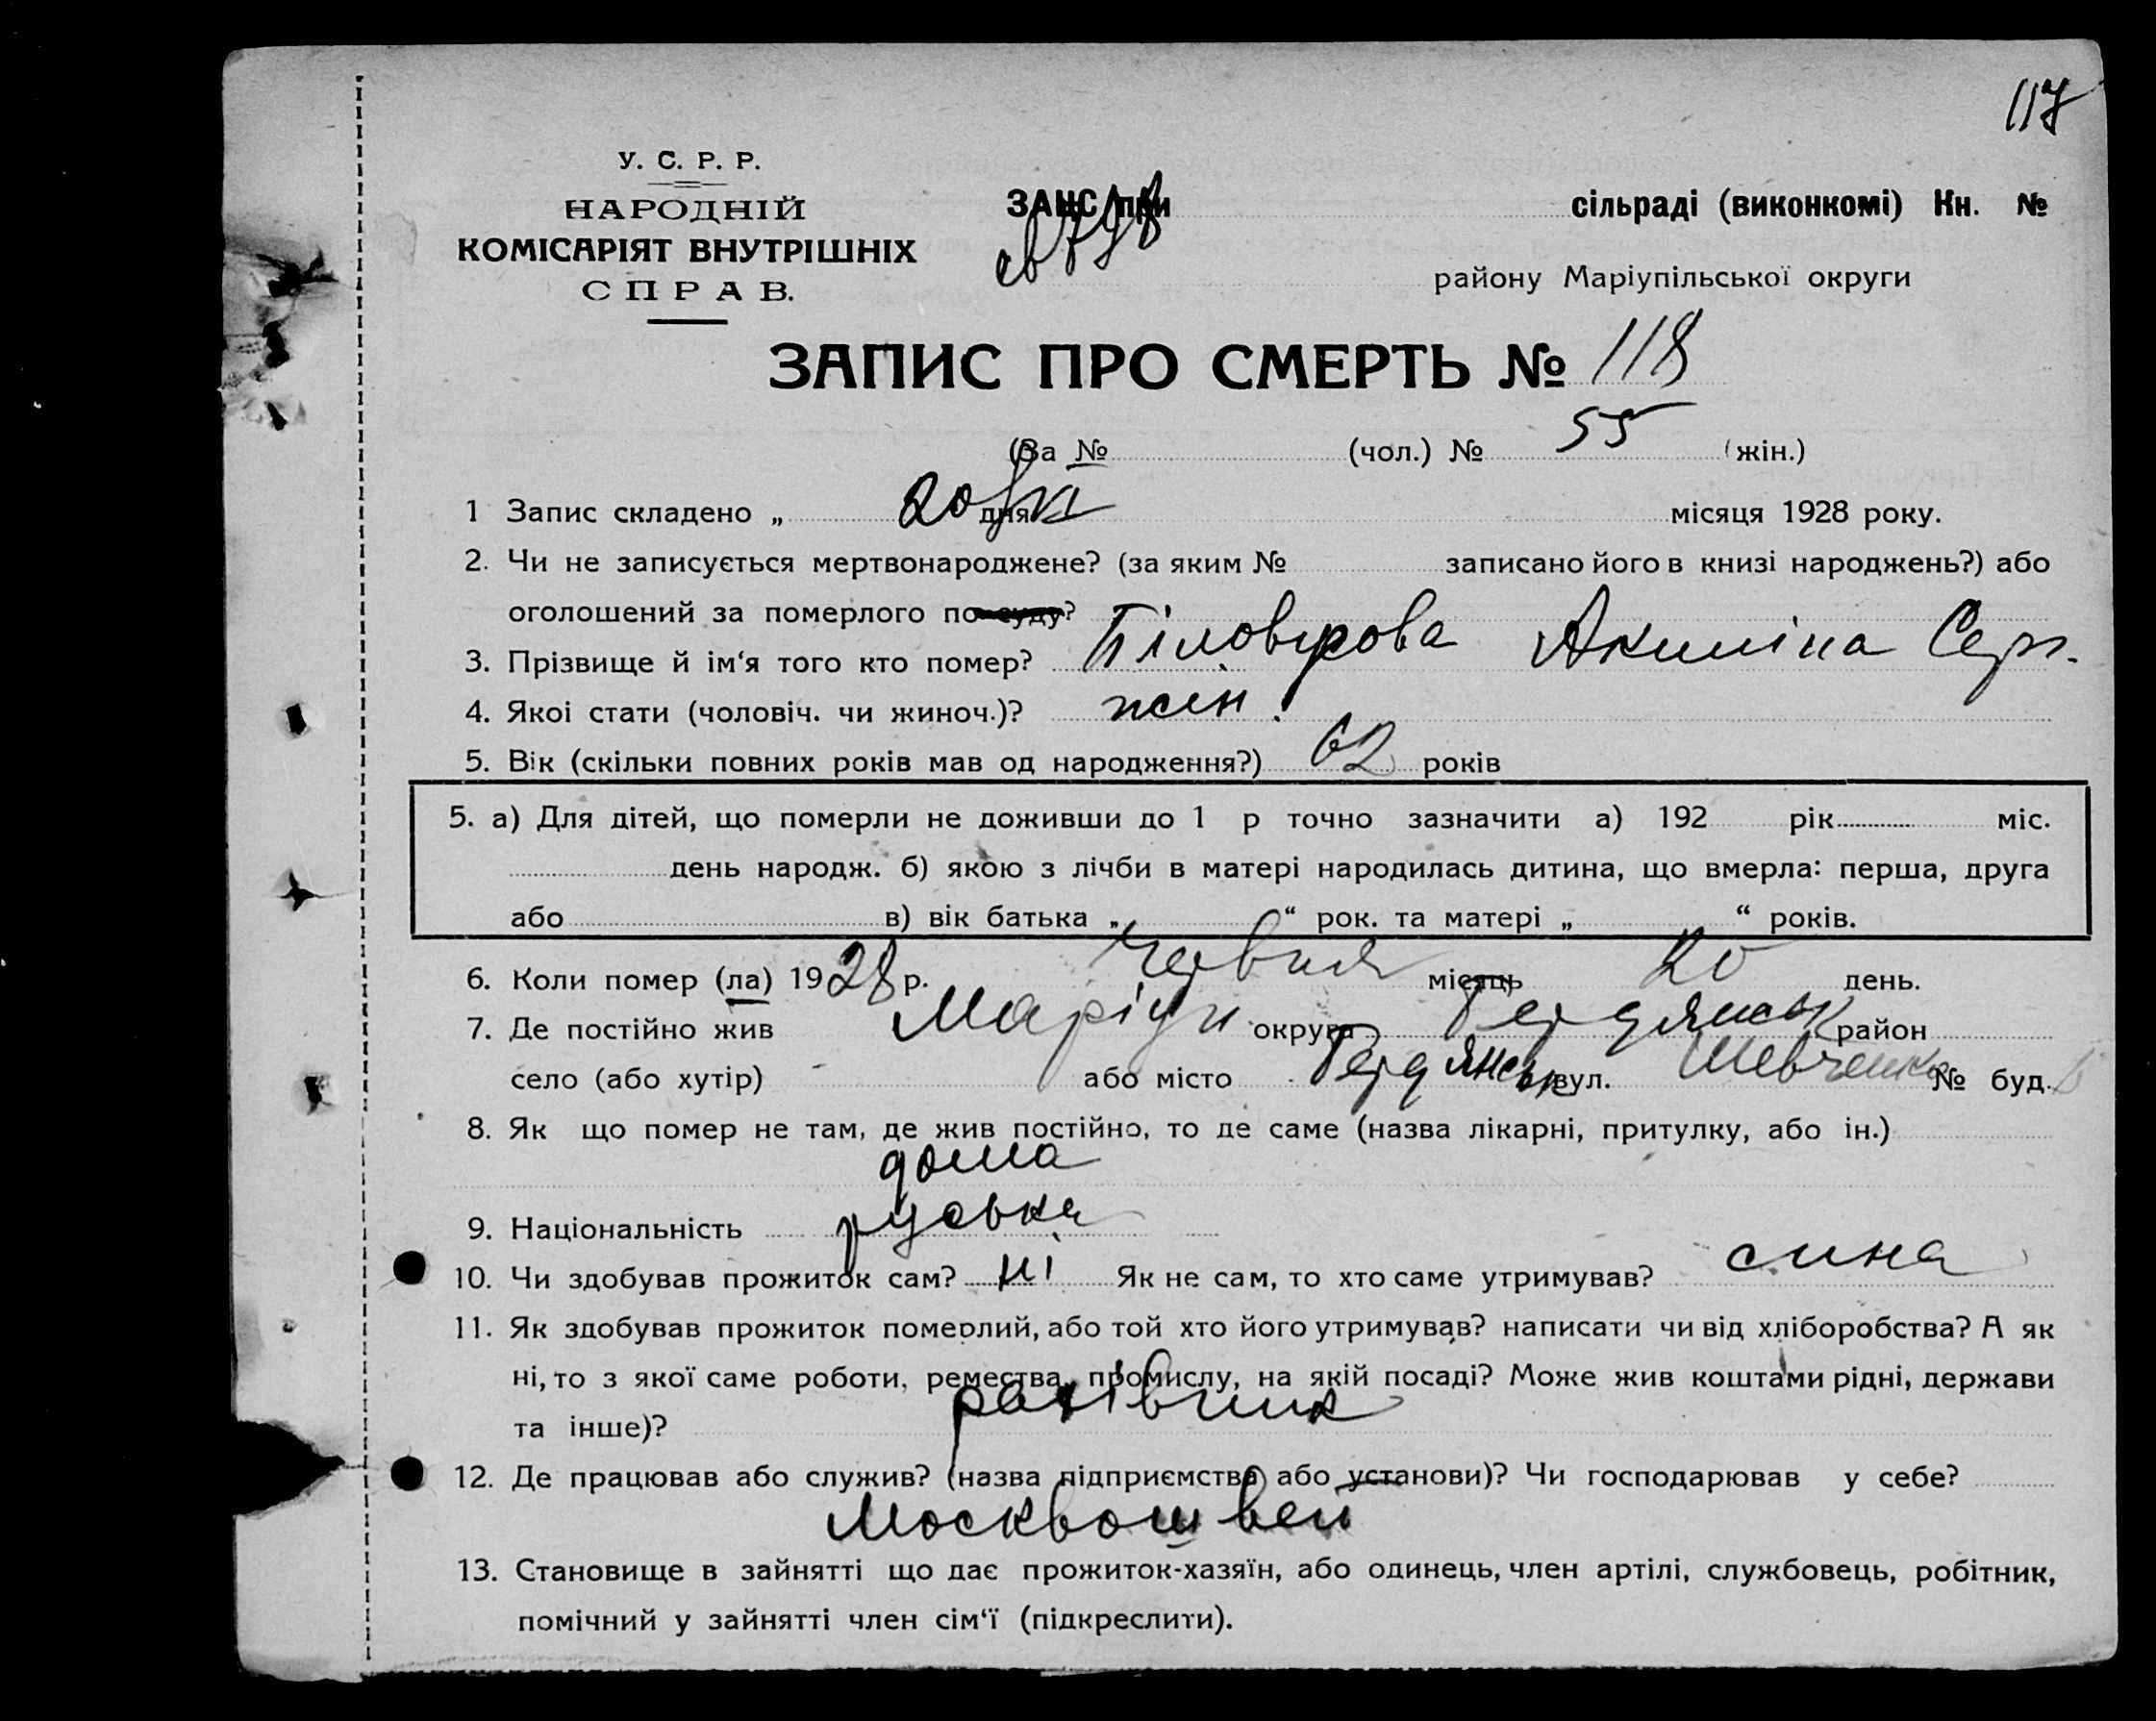 117
У. С. Р. Р.
НАРОДНІЙ
КОМІСАРІЯТ ВНУТРІШНІХ
СПРАВ.
ЗАНС при сільраді (виконкомі) Кн. №
району Маріупільської округи
ЗАПИС ПРО СМЕРТЬ № 118
(За № (чол.) № 55 (жін.)
1 Запис складено „ 20/VI дня місяця 1928 року.
2. Чи не записується мертвонароджене? (за яким № записано його в книзі народжень?) або
оголошений за померлого по суду?
3. Прізвище й ім‘я того кто помер? Акиліна Серг.
4. Якоі стати (чоловіч. чи жиноч.)? жін.
5. Вік (скільки повних років мав од народження?) 62 років
5. а) Для дітей, що померли не доживши до 1 р точно зазначити а) 192 рік міс.
день народж. б) якою з лічби в матері народилась дитина, що вмерла: перша, друга
або в) вік батька „ “ рок. та матері „ “ років.
6. Коли помер (ла) 1928 р. Червня місяць 20 день.
7. Де постійно жив Маріуп округа Бердянськ район
село (або хутір) - або місто Бердянськ вул. Шевченко № буд.
8. Як що помер не там, де жив постійно, то де саме (назва лікарні, притулку, або ін.)
дома
9. Національність руська
10. Чи здобував прожиток сам? ні Як не сам, то хто саме утримував? сина
11. Як здобував прожиток померлий, або той хто його утримував? написати чи від хліборобства? А як
ні, то з якої саме роботи, ремества, промислу, на якій посаді? Може жив коштами рідні, держави
та інше)? рахівник
12. Де працював або служив? (назва підприємства) або установи)? Чи господарював у себе?
Москвошвей
13. Становище в зайнятті що дає прожиток-хазяїн, або одинець, член артілі, службовець, робітник,
помічний у зайнятті член сім‘ї (підкреслити).